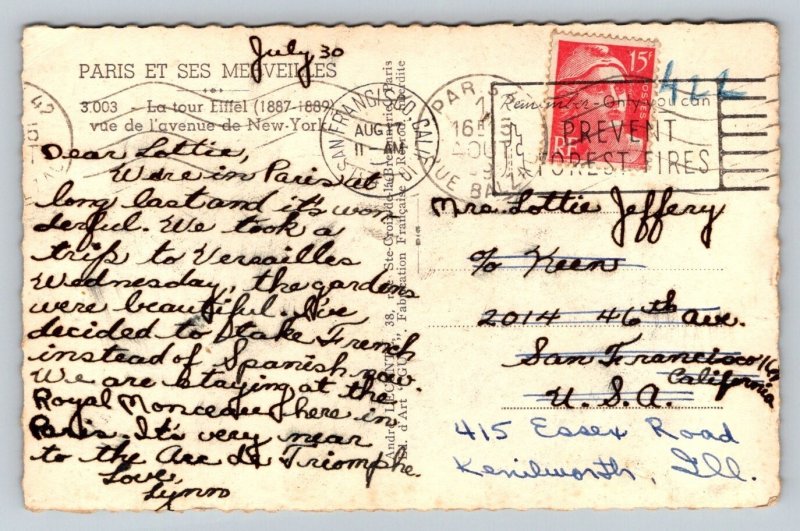 July 30
PARIS ET SES MERVEILLES
3.003 - La tour Eiffel (1887-1889)
vue de l'avenue de New-York
Dear Lottie,
We're in Paris at
long last and it's won
derful. We took a
trip to Versailles
Wednesday, the gardens
were beautiful. I've
decided to take French
instead of Spanish now.
We are staying at the
Royal Monceau here in
Paris. It's very near
to the Arc de Triomphe.
Love,
Lynn
SAN FRANCISCO CALIF.
AUG
11 - AM
PARIS
16
AOU
RUE BA
15F
RF
422
Remember - Only you can
PREVENT
FOREST FIRES
Mrs. Lottie Jeffery
c/o Keen
2014 46th Ave.
San Francisco 16,
California
U.S.A.
415 Essex Road
Kenilworth, Ill.